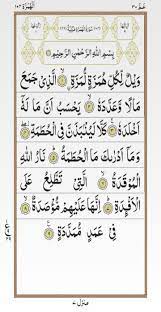 عمّ ٣٠
الهمزة ١٠٤
بِسْمِ اللّٰهِ الرَّحْمٰنِ الرَّحِيْمِ
وَيْلٌ لِّكُلِّ هُمَزَةٍ لُّمَزَةٍ ۝١ الَّذِيْ جَمَعَ
مَالًا وَّعَدَّدَهٗ ۝٢ يَحْسَبُ اَنَّ مَالَهٗٓ
اَخْلَدَهٗ ۝٣ كَلَّا لَيُنْۢبَذَنَّ فِي الْحُطَمَةِ ۝٤
وَمَآ اَدْرٰىكَ مَا الْحُطَمَةُ ۝٥ نَارُ اللّٰهِ
الْمُوْقَدَةُ ۝٦ الَّتِيْ تَطَّلِعُ عَلَى
الْاَفْـِٕدَةِ ۝٧ اِنَّهَا عَلَيْهِمْ مُّؤْصَدَةٌ ۝٨
فِيْ عَمَدٍ مُّمَدَّدَةٍ ۝٩
منزل ٧